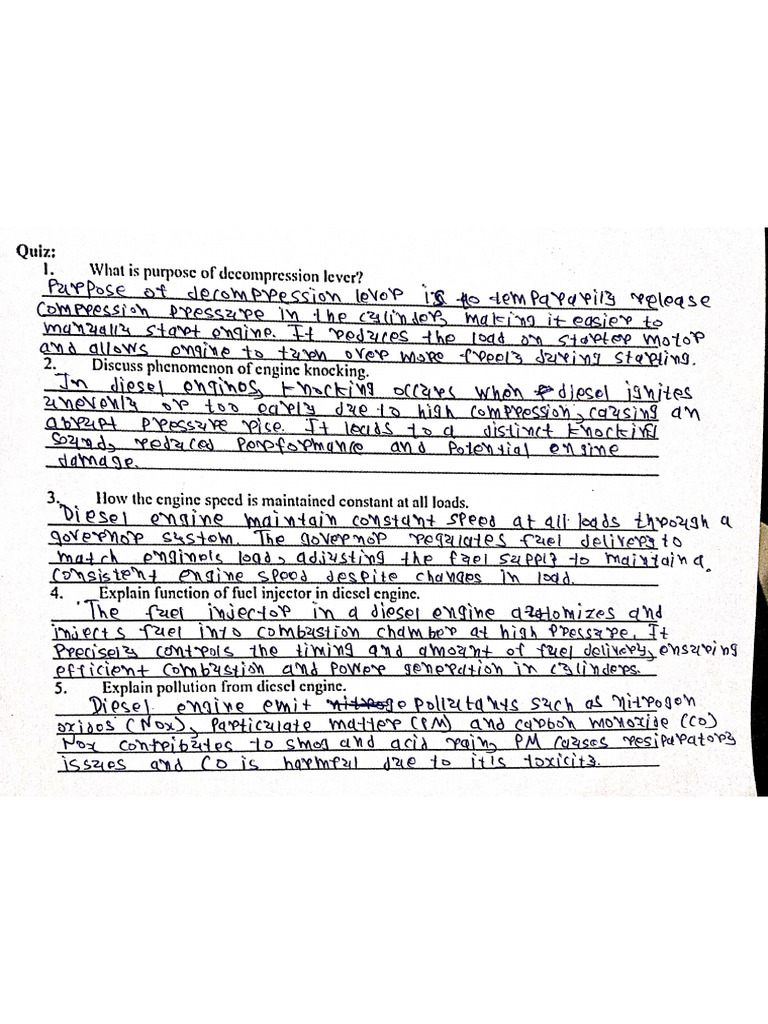 Quiz:
1. What is purpose of decompression lever?
Purpose of decompression lever is to tempararily release
compression pressure in the cylinder, making it easier to
manually start engine. It reduces the load on starter motor
and allows engine to turn over more freely during starting.
2. Discuss phenomenon of engine knocking.
In diesel engines, knocking occures when diesel ignites
unevenly or too early due to high compression, causing an
abrupt pressure rise. It leads to a distinct knocking
sound, reduced performance and potential engine
damage.
3. How the engine speed is maintained constant at all loads.
Diesel engine maintain constant speed at all loads through a
governor system. The governor regulates fuel delivery to
match engine's load, adjusting the fuel supply to maintain a
consistent engine speed despite changes in load.
4. Explain function of fuel injector in diesel engine.
The fuel injector in a diesel engine atomizes and
injects fuel into combustion chamber at high pressure. It
precisely controls the timing and amount of fuel delivery, ensuring
efficient combustion and power generation in cylinders.
5. Explain pollution from diesel engine.
Diesel engine emit pollutants such as nitrogen
oxides (Nox), particulate matter (PM) and carbon monoxide (CO)
Nox contributes to smog and acid rain, PM causes resiparatory
issues and CO is harmful due to it's toxicity.